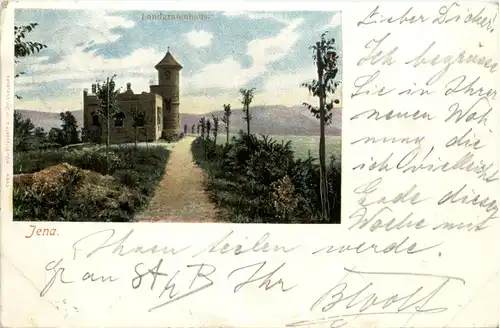 Landgrafenhaus.
Jena.
Lieber Dichter,
Ich begrüsse
Sie in Ihrer
neuen Woh
nung, die
ich vielleicht
Ende dieser
Woche mit
Ihnen teilen werde.
Ihr